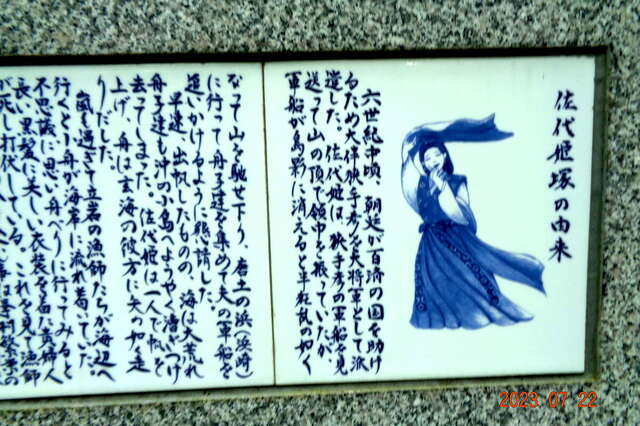 佐代姫塚の由来
六世紀中頃、朝廷が百済の国を助け
るため大伴狭手彦を大将軍として派
遣した。佐代姫は、狭手彦の軍船を見
送って山の頂で領巾を振っていたが、
軍船が島影に消えると半狂乱の如く
なって山を馳せ下り、唐土の浜（浜崎）
に行って舟子達を集めて夫の軍船を
追いかけるように懇請した。
早速、出帆したものの、海は大荒れ
舟子達も沖の小島へようやく漕ぎつけ
去ってしまった。佐代姫は一人で帆を
上げ、舟は玄海の彼方に矢の如く走
りだした。
嵐も過ぎて立岩の漁師たちが海辺へ
行くと小舟が海岸に流れ着いていた。
不思議に思い舟べりに行ってみると
長い黒髪に美しい衣装を着た貴婦人
が死し打伏している。これを見て漁師
2023.07.22